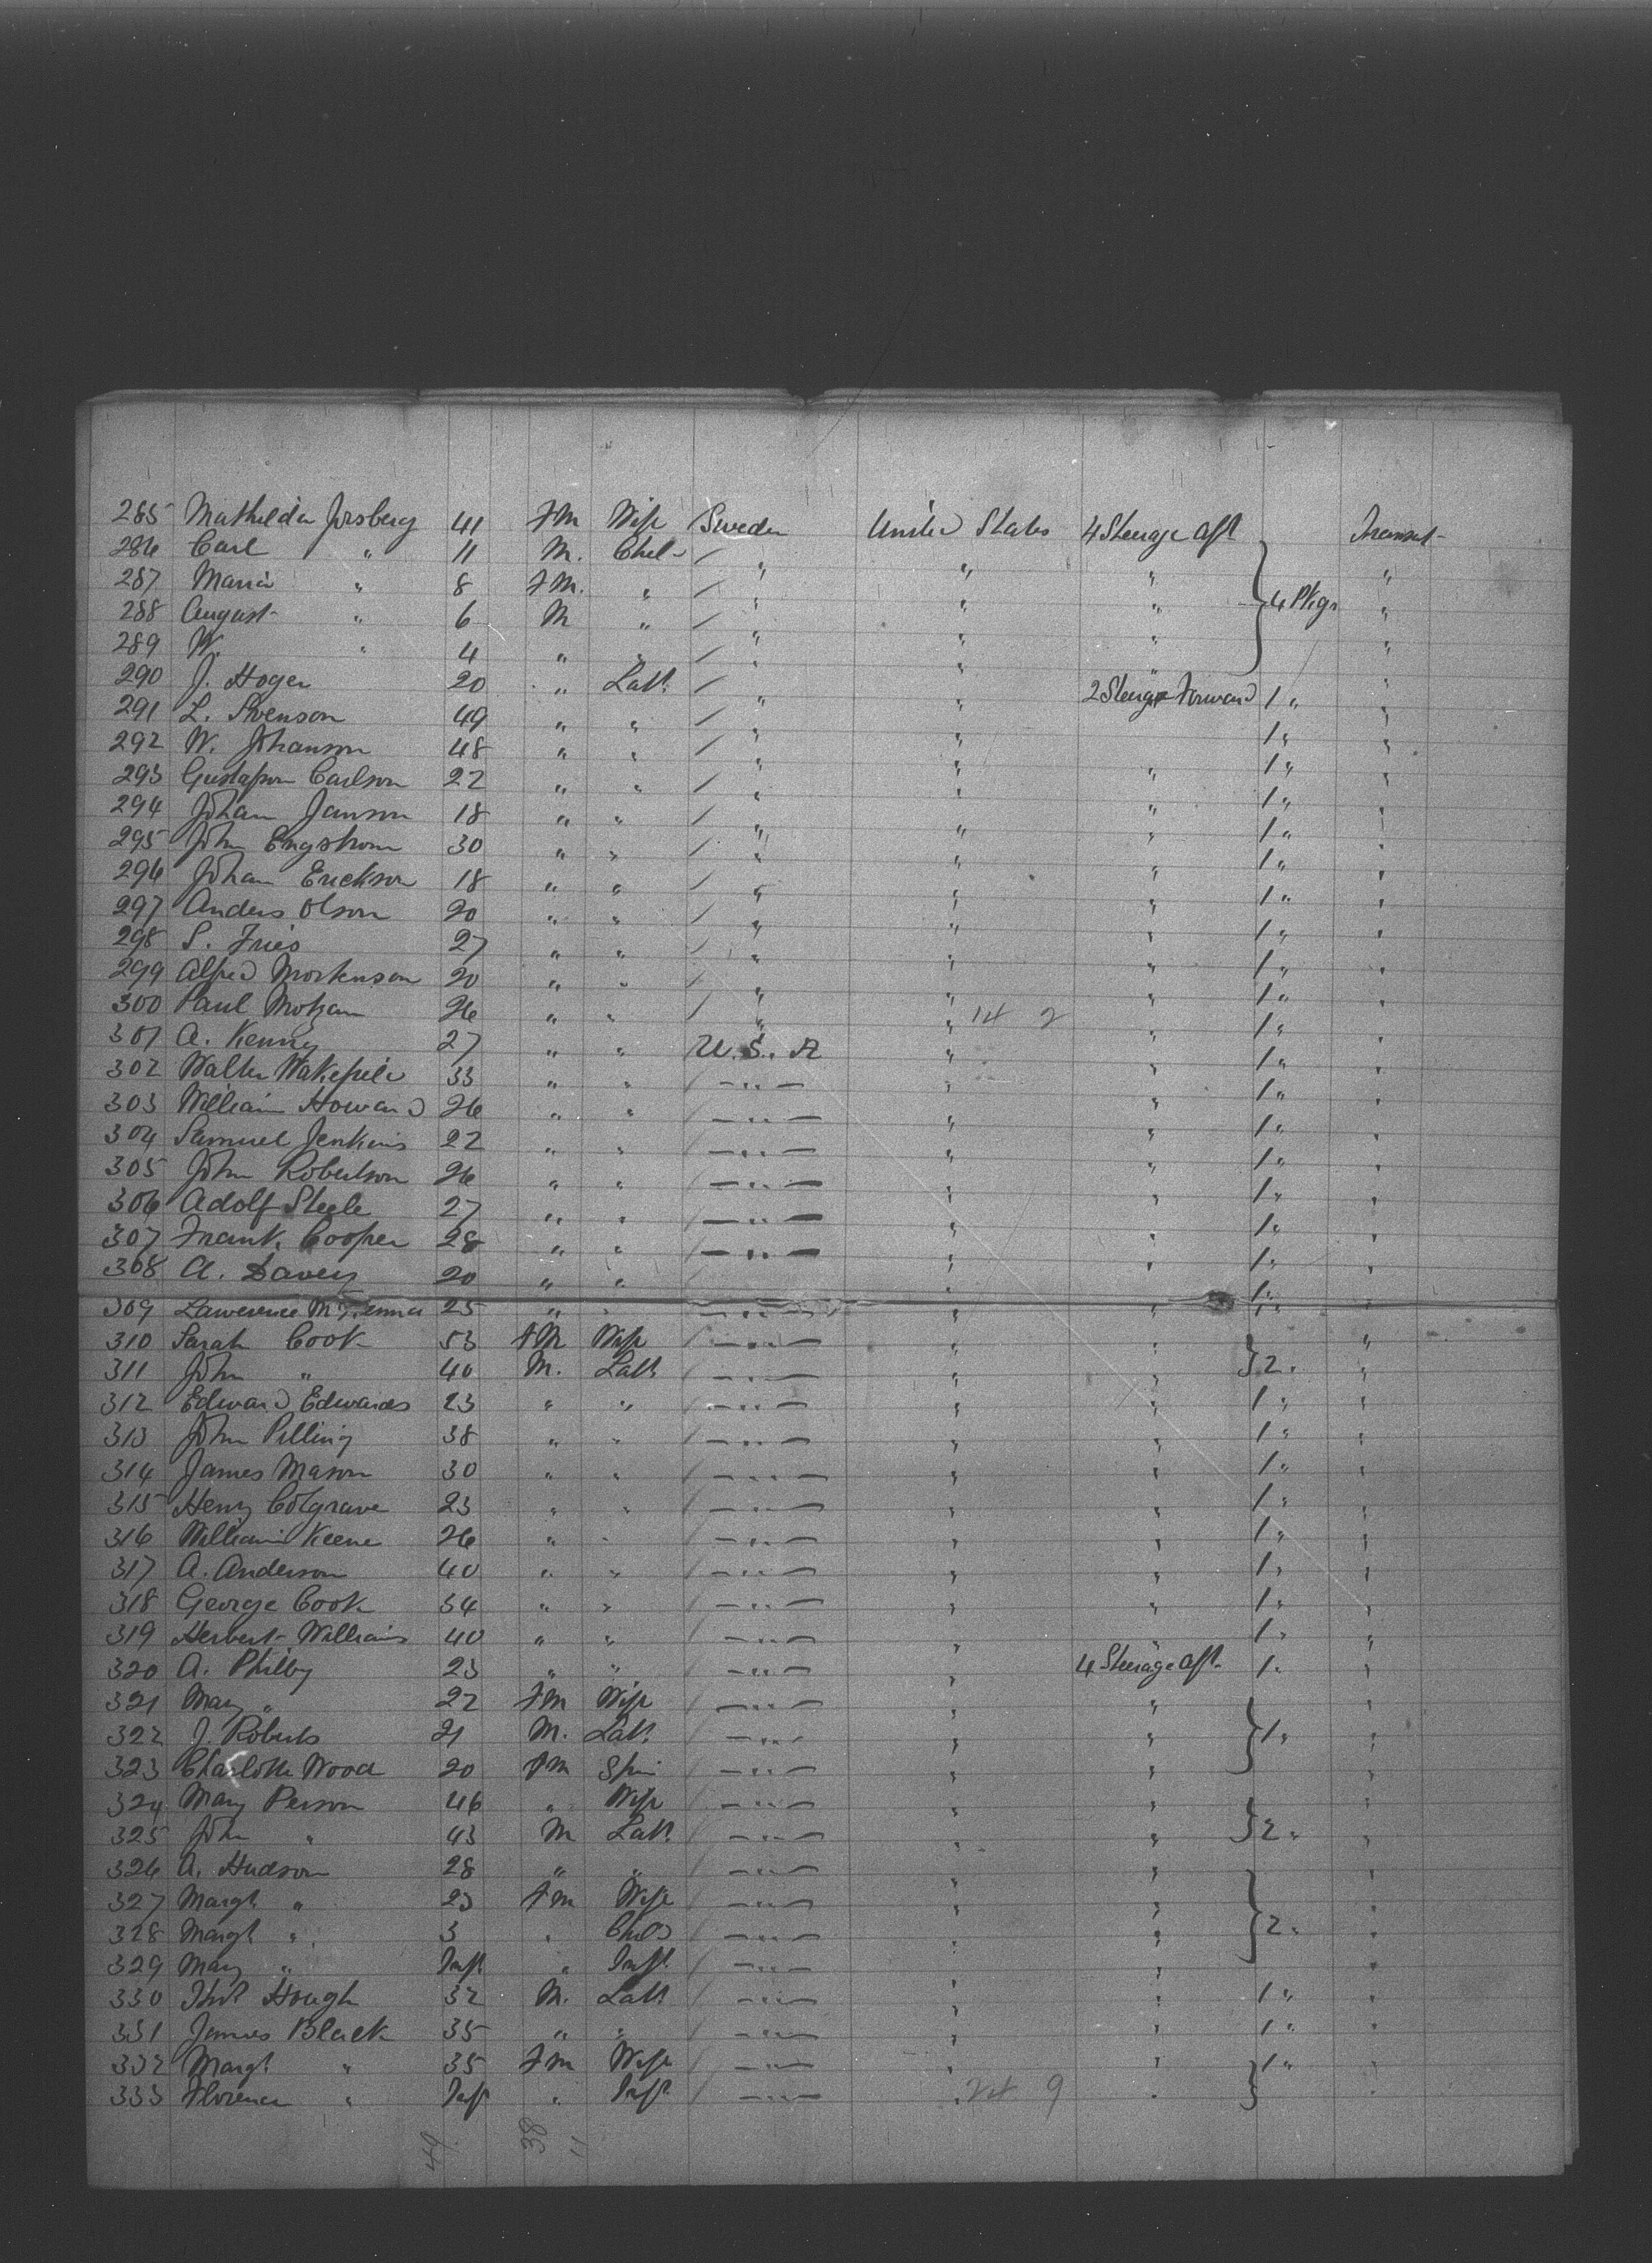 285 Mathilda Forsberg 41 Fm Wife / Sweden United States 4 Steerage Aft Transit
286 Carl " 11 M. Chel- / " " " "
287 Maria " 8 Fm. " / " " " } 4 Pkgs "
288 August " 6 M " / " " " "
289 W. " 4 " " / " " " "
290 J. Hoger 20 " Labr / " " 2 Steerage Forward 1 " "
291 L. Svenson 49 " " / " " 1 " "
292 W. Johanson 48 " " / " " " 1 " "
293 Gustafson Carlson 22 " " / " " " 1 " "
294 Johan Janson 18 " " / " " " 1 " "
295 John Engstrom 30 " " / " " " 1 " "
296 Johan Erickson 18 " " / " " " 1 " "
297 Anders Olson 20 " " / " " " 1 " "
298 S. Fries 27 " " / " " " 1 " "
299 Alfred Mortenson 20 " " / " " " 1 " "
300 Paul 26 " " / " " 14 2 " 1 " "
301 A. Kenny 27 " " U. S. A " " 1 " "
302 Walter Wakefield 33 " " / — " — " " 1 " "
303 William Howard 26 " " / — " — " " 1 " "
304 Samuel Jenkins 22 " " / — " — " " 1 " "
305 John Robertson 26 " " / — " — " " 1 " "
306 Adolf Steele 27 " " / — " — " " 1 " "
307 Frank Cooper 28 " " / — " — " " 1 " "
308 A. Davey 20 " " / " " 1 " "
309 Lawerence McKenna 25 " " — " — " " 1 " "
310 Sarah Cook 53 Fm Wife / — " — " " "
311 John " 40 M. Labr — " — " " } 2 " "
312 Edward Edwards 23 " " / — " — " " 1 " "
313 John Pilling 38 " " / — " — " " 1 " "
314 James Mason 30 " " / — " — " " 1 " "
315 Henry Colgrave 23 " " / — " — " " 1 " "
316 William Keene 26 " " / — " — " " 1 " "
317 A. Anderson 40 " " / — " — " " 1 " "
318 George Cook 34 " " / — " — " " 1 " "
319 Herbert Williams 40 " " / — " — " " 1 " "
320 A. Philby 23 " " / — " — " 4 Steerage Aft 1 " "
321 Mary " 22 Fm Wife / — " — " " "
322 J. Roberts 21 M. Labr / — " — " " } 1 " "
323 Charlotte Wood 20 Fm Spin / — " — " " "
324 Mary Person 46 " Wife / — " — " " "
325 John " 43 M Labr / — " — " " } 2 " "
326 A. Hudson 28 " " / — " — " " "
327 Margt " 23 Fm Wife / — " — " " "
328 Margt " 3 " Child / — " — " " } 2 " "
329 Mary " Inft " Inft / — " — " " "
330 Thos Hough 32 M. Labr / — " — " " 1 " "
331 James Black 35 " " / — " — " " 1 " "
332 Margt " 35 Fm Wife / — " — " " 1 "
333 Florence " Inf " Inft / — " — " 24 9 " } "
49 38 11